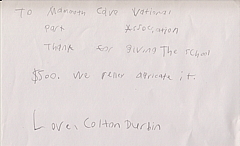 To Mammoth Cave National
Park Association
Thank for giving The school
$500. We relly apricate it.
Love, Colton Durbin